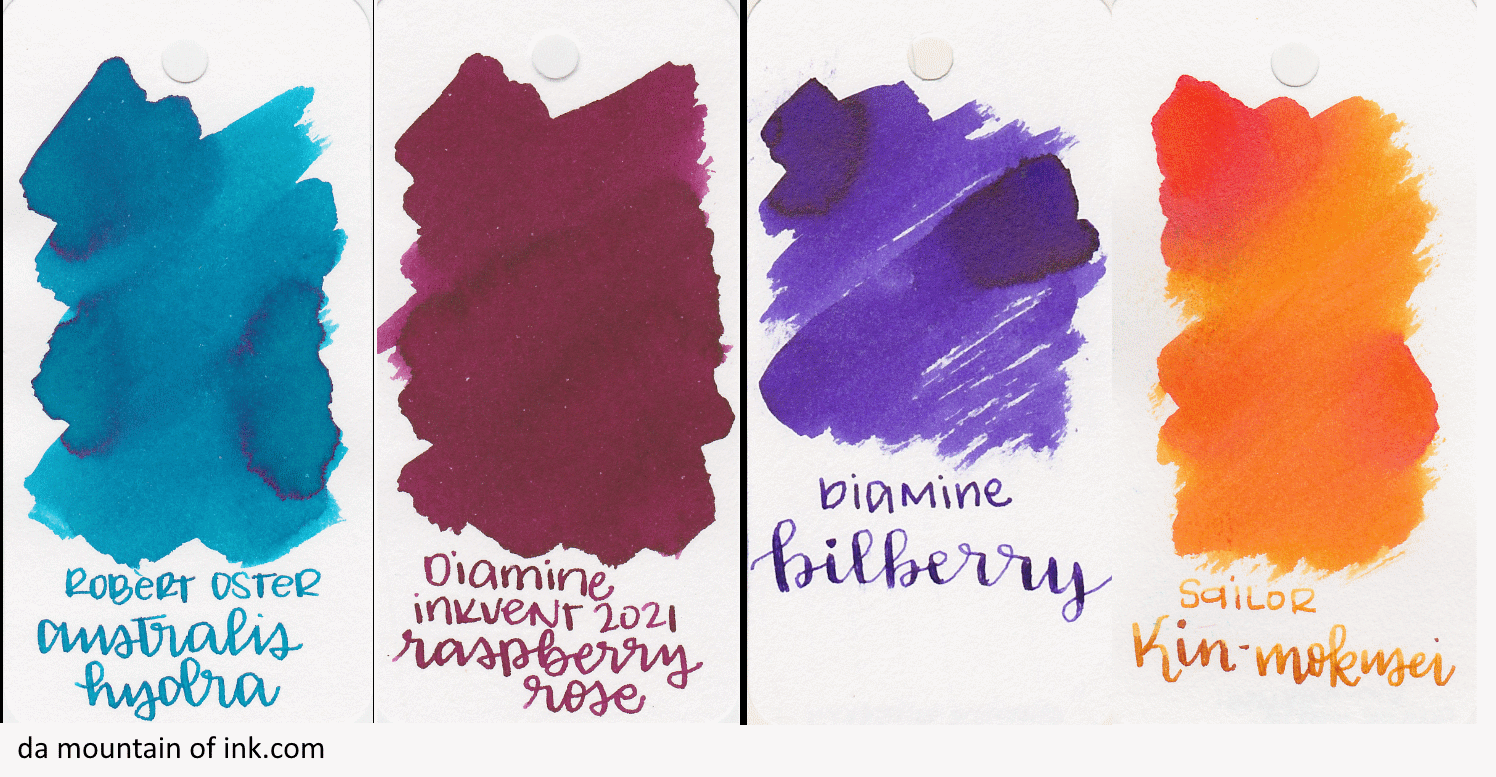 ROBERT OSTER
australis
hydra
Diamine
inkvent 2021
raspberry
rose
Diamine
bilberry
Sailor
Kin-mokusei
da mountain of ink.com